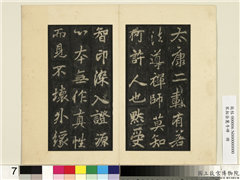 太康二載有若
法導禪師莫知
何許人也默受
智印深入證源
心本無作真性
而見不壞外緣
7
國立故宮博物院